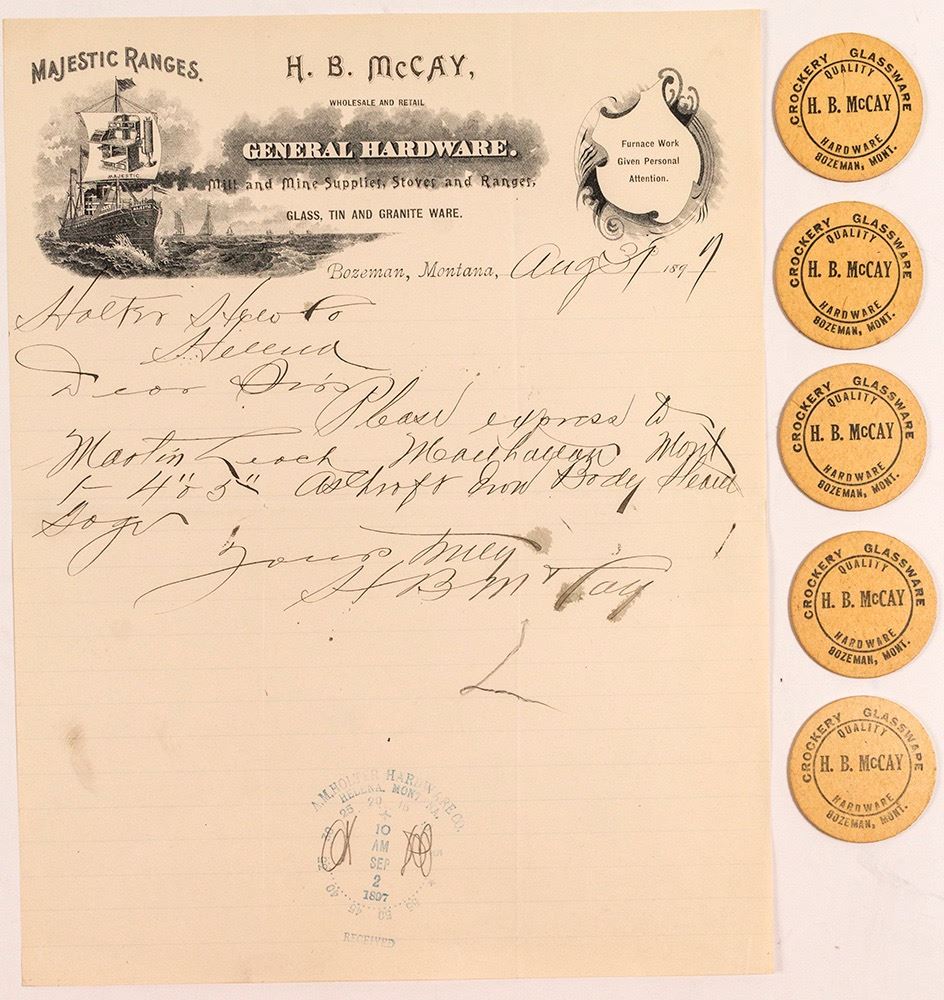 MAJESTIC RANGES.
MAJESTIC
H. B. McCAY,
WHOLESALE AND RETAIL
GENERAL HARDWARE.
Mill and Mine Supplies, Stoves and Ranges,
GLASS, TIN AND GRANITE WARE.
Furnace Work
Given Personal
Attention.
Bozeman, Montana, Aug 31 1897
Holter Hdw Co
Helena
Dear Sirs
Please express to
Martin Leach Manhattan Mont
1- 4" or 5" Ashcroft Iron Body Steam
Gage
Yours Truly
H B McCay
A.M. HOLTER HARDWARE CO.
HELENA, MONTANA.
10
AM
SEP
2
1897
OK
RECEIVED
CROCKERY GLASSWARE
QUALITY
H. B. McCAY
HARDWARE
BOZEMAN, MONT.
CROCKERY GLASSWARE
QUALITY
H. B. McCAY
HARDWARE
BOZEMAN, MONT.
CROCKERY GLASSWARE
QUALITY
H. B. McCAY
HARDWARE
BOZEMAN, MONT.
CROCKERY GLASSWARE
QUALITY
H. B. McCAY
HARDWARE
BOZEMAN, MONT.
CROCKERY GLASSWARE
QUALITY
H. B. McCAY
HARDWARE
BOZEMAN, MONT.